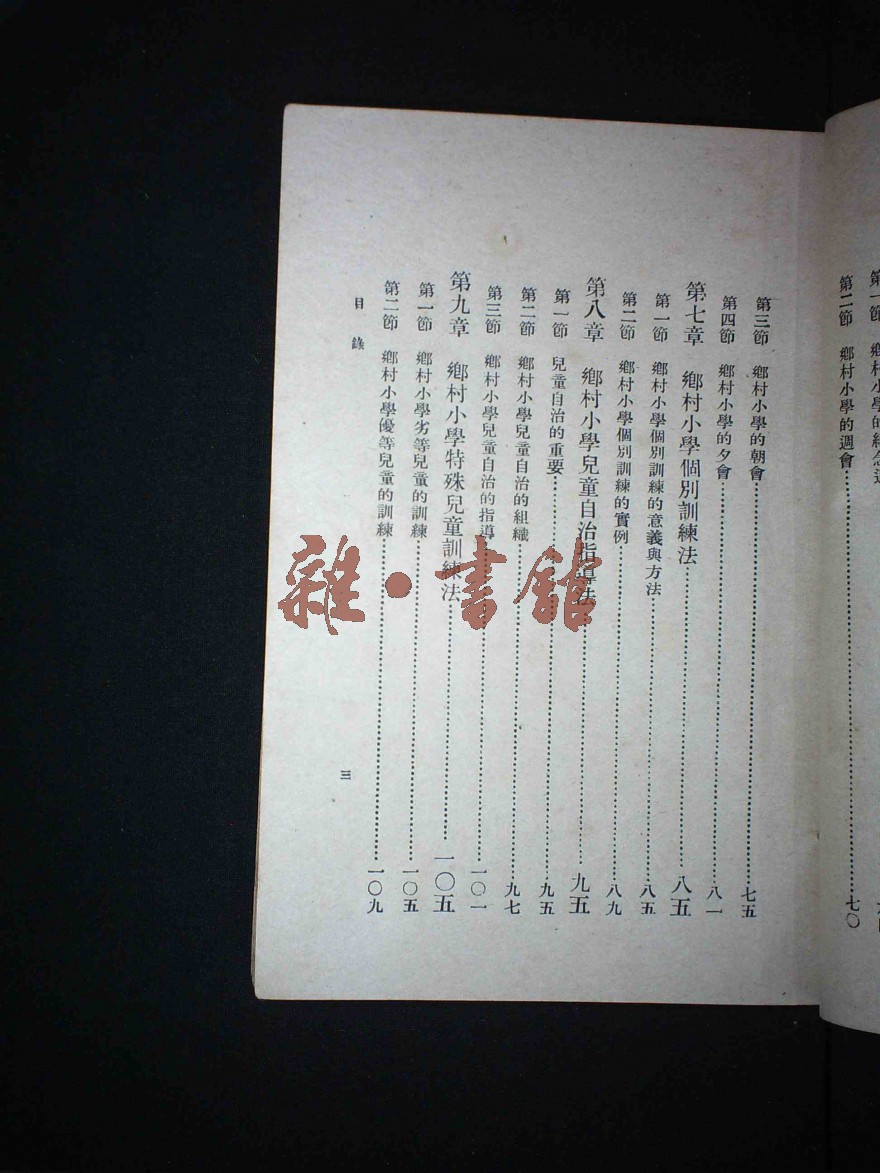 第二節　鄉村小學的週會……七〇
第三節　鄉村小學的朝會……七五
第四節　鄉村小學的夕會……八一
第七章　鄉村小學個別訓練法……八五
第一節　鄉村小學個別訓練的意義與方法……八五
第二節　鄉村小學個別訓練的實例……八九
第八章　鄉村小學兒童自治指導法……九五
第一節　兒童自治的重要……九五
第二節　鄉村小學兒童自治的組織……九七
第三節　鄉村小學兒童自治的指導……一〇一
第九章　鄉村小學特殊兒童訓練法……一〇五
第一節　鄉村小學劣等兒童的訓練……一〇五
第二節　鄉村小學優等兒童的訓練……一〇九
目錄
三
雜·書館